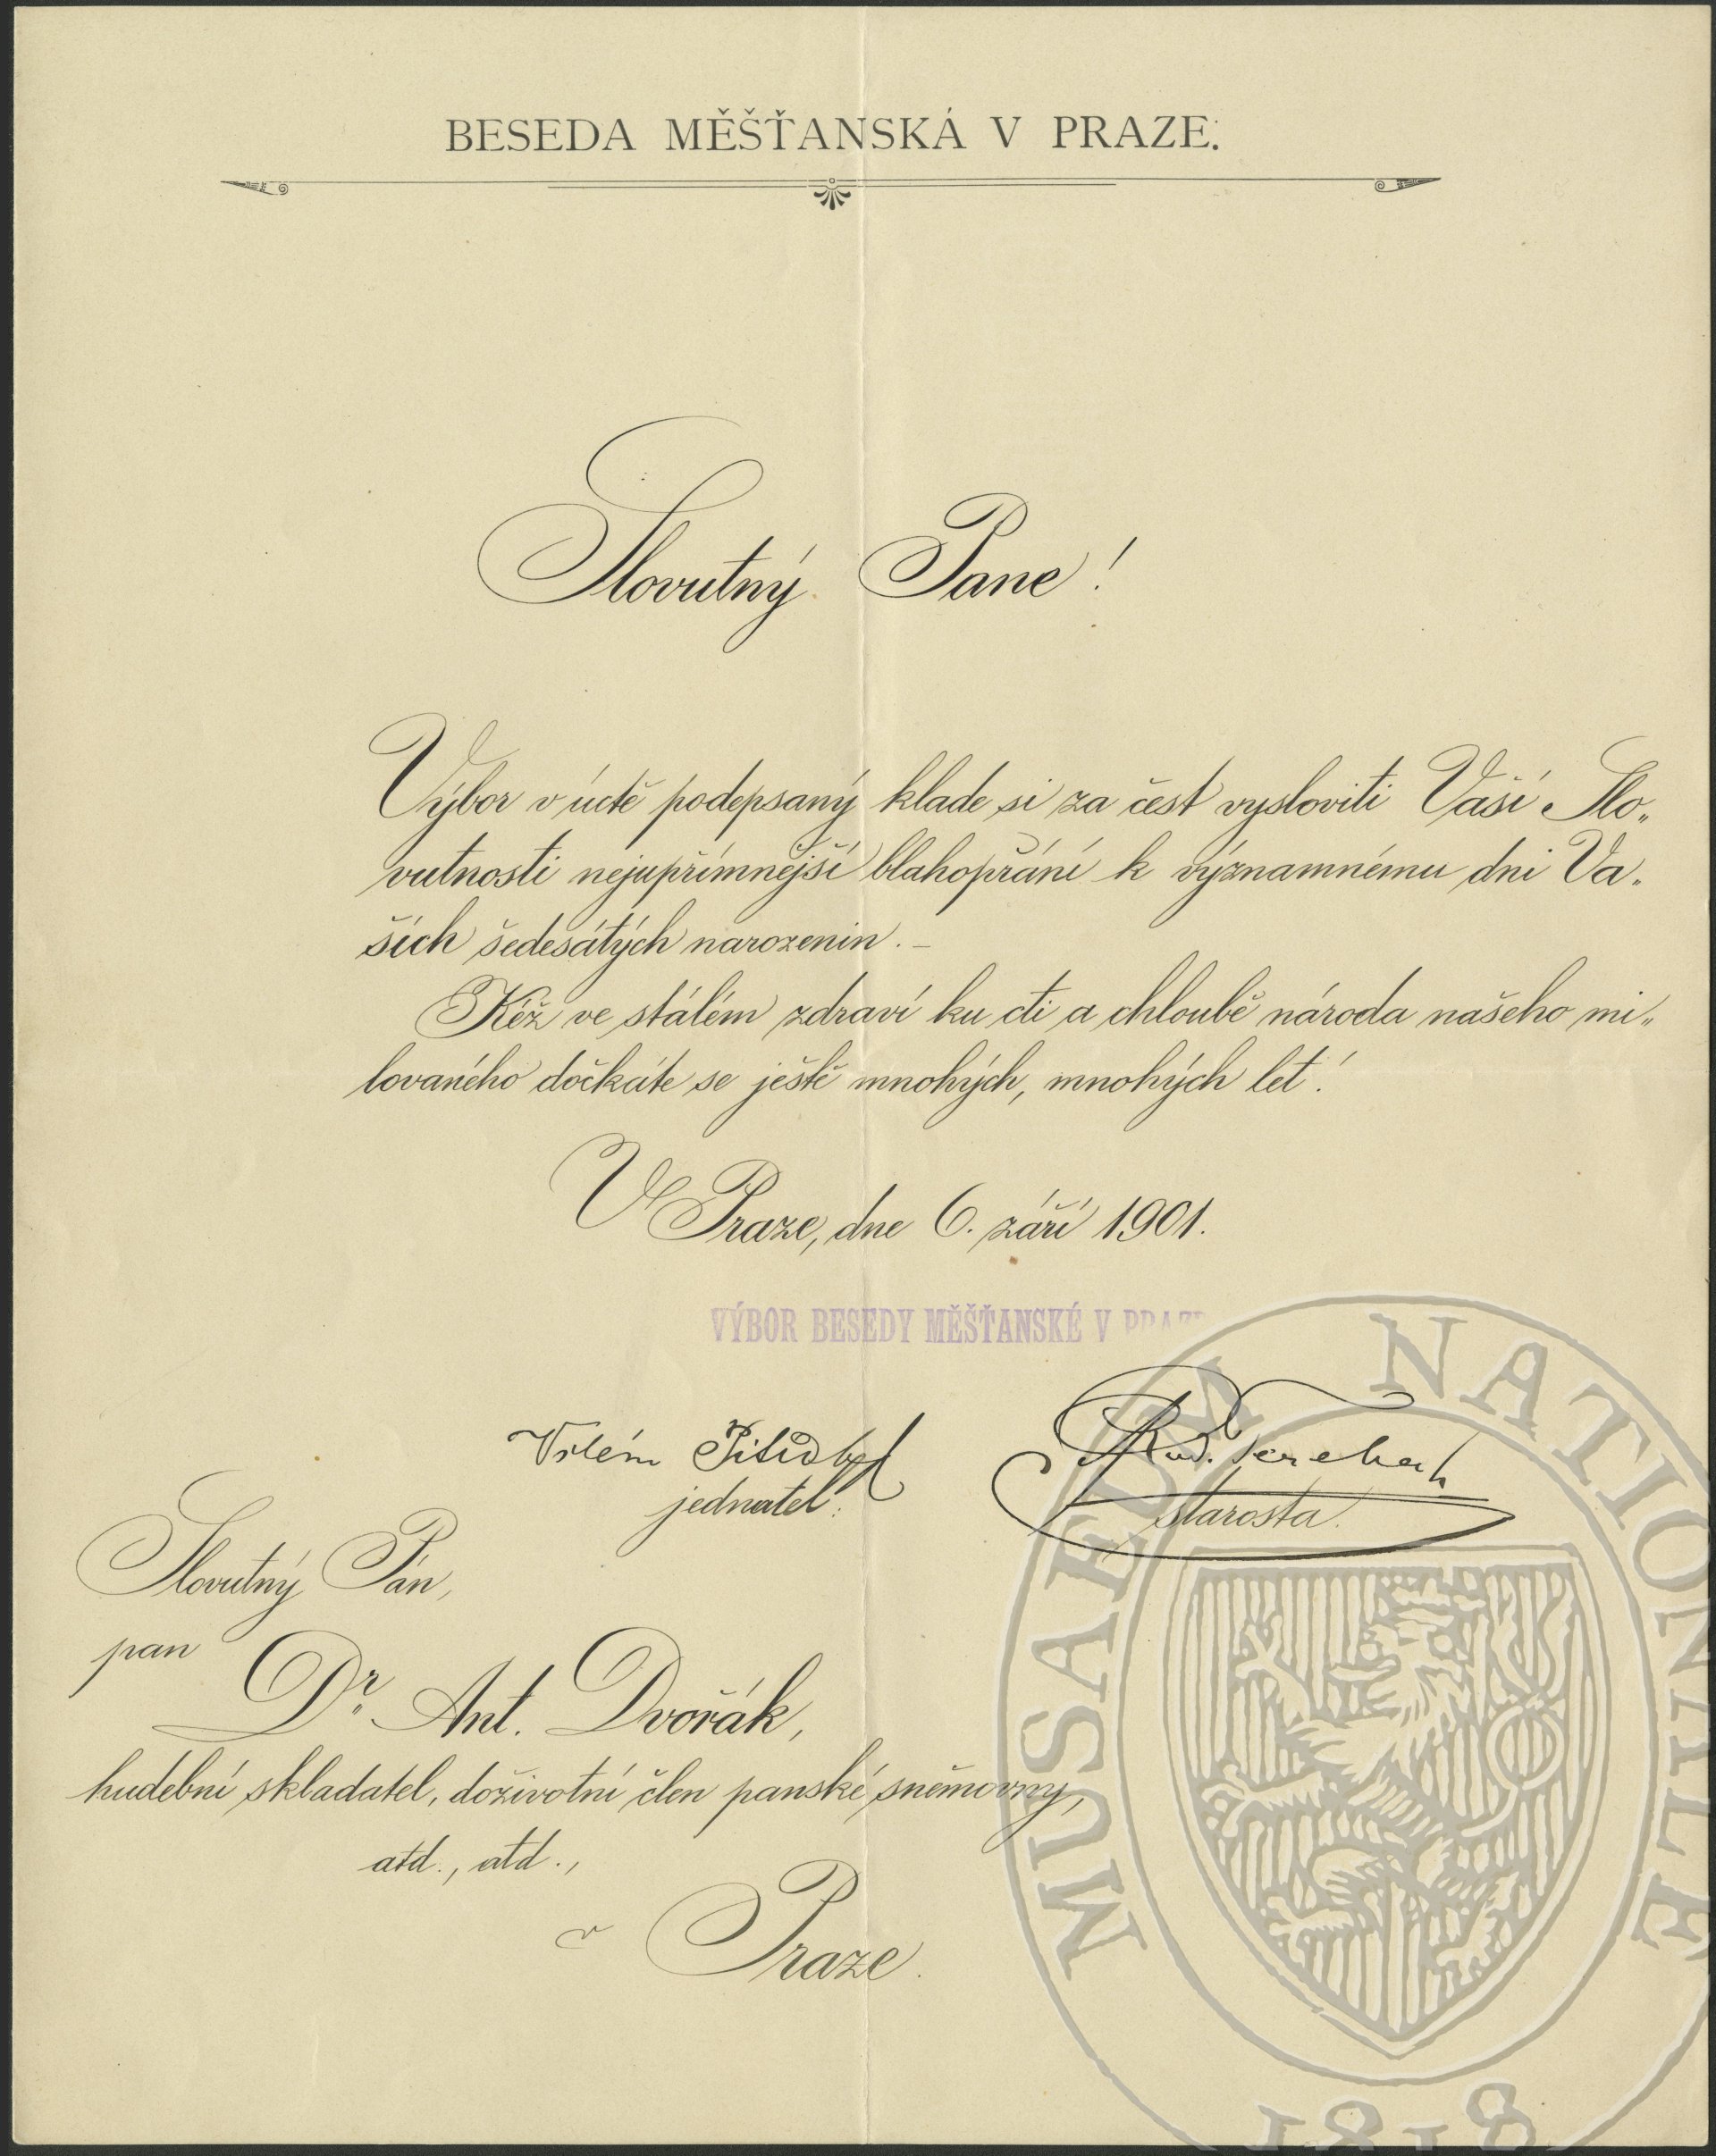 BESEDA MĚŠŤANSKÁ V PRAZE.
Slovutný Pane!
Výbor v úctě podepsaný klade si za čest vysloviti Vaší Slo„
vutnosti nejupřímnější blahopřání k významnému dni Va„
šich šedesátých narozenin. –
Kéž ve stálém zdraví ku cti a chloubě národa našeho mi„
lovaného dočkáte se ještě mnohých, mnohých let!
V Praze, dne 6. září 1901.
VÝBOR BESEDY MĚŠŤANSKÉ V PRAZE
Vilém Rud.
jednatel. starosta.
Slovutný Pán,
pan
Dr. Ant. Dvořák,
hudební skladatel, doživotní člen panské sněmovny,
atd., atd.,
v Praze.
MUSAEUM NATIONALE
1818